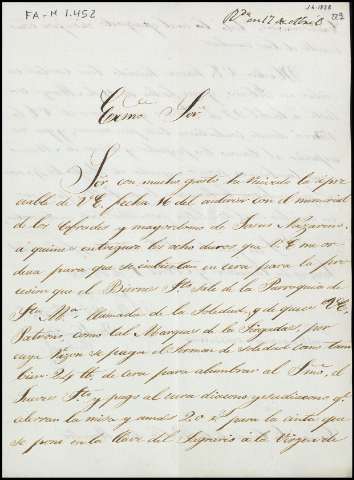 FA-M 1.452
Rda en 17 de Abril
Exmo. Sor.
Sor. con mucho gusto he recivido la apre
ciable de V.E. fecha 16 del anterior con el memorial
de los Cofrades y mayordomos de Jesus Nazareno,
a quienes entregare los ocho duros que V.E. me or
dena para que se inbiertan en cera para la pro
cesion que el Biernes Sto. sale de la Parroquia de
Sta. Ma. llamada de la Soledad, y de que es V.E.
Patrono como tal Marques de la
cuya razon se paga el Sermon de soledad como tam
bien 24 lb. de cera para alumbrar al Smo. el
Jueves Sto. y pago al cura diacono y subdiacono qe.
celebran la misa y ademas 20 rs. para la cinta que
se pone en la llave del Sagrario a la Virgen de